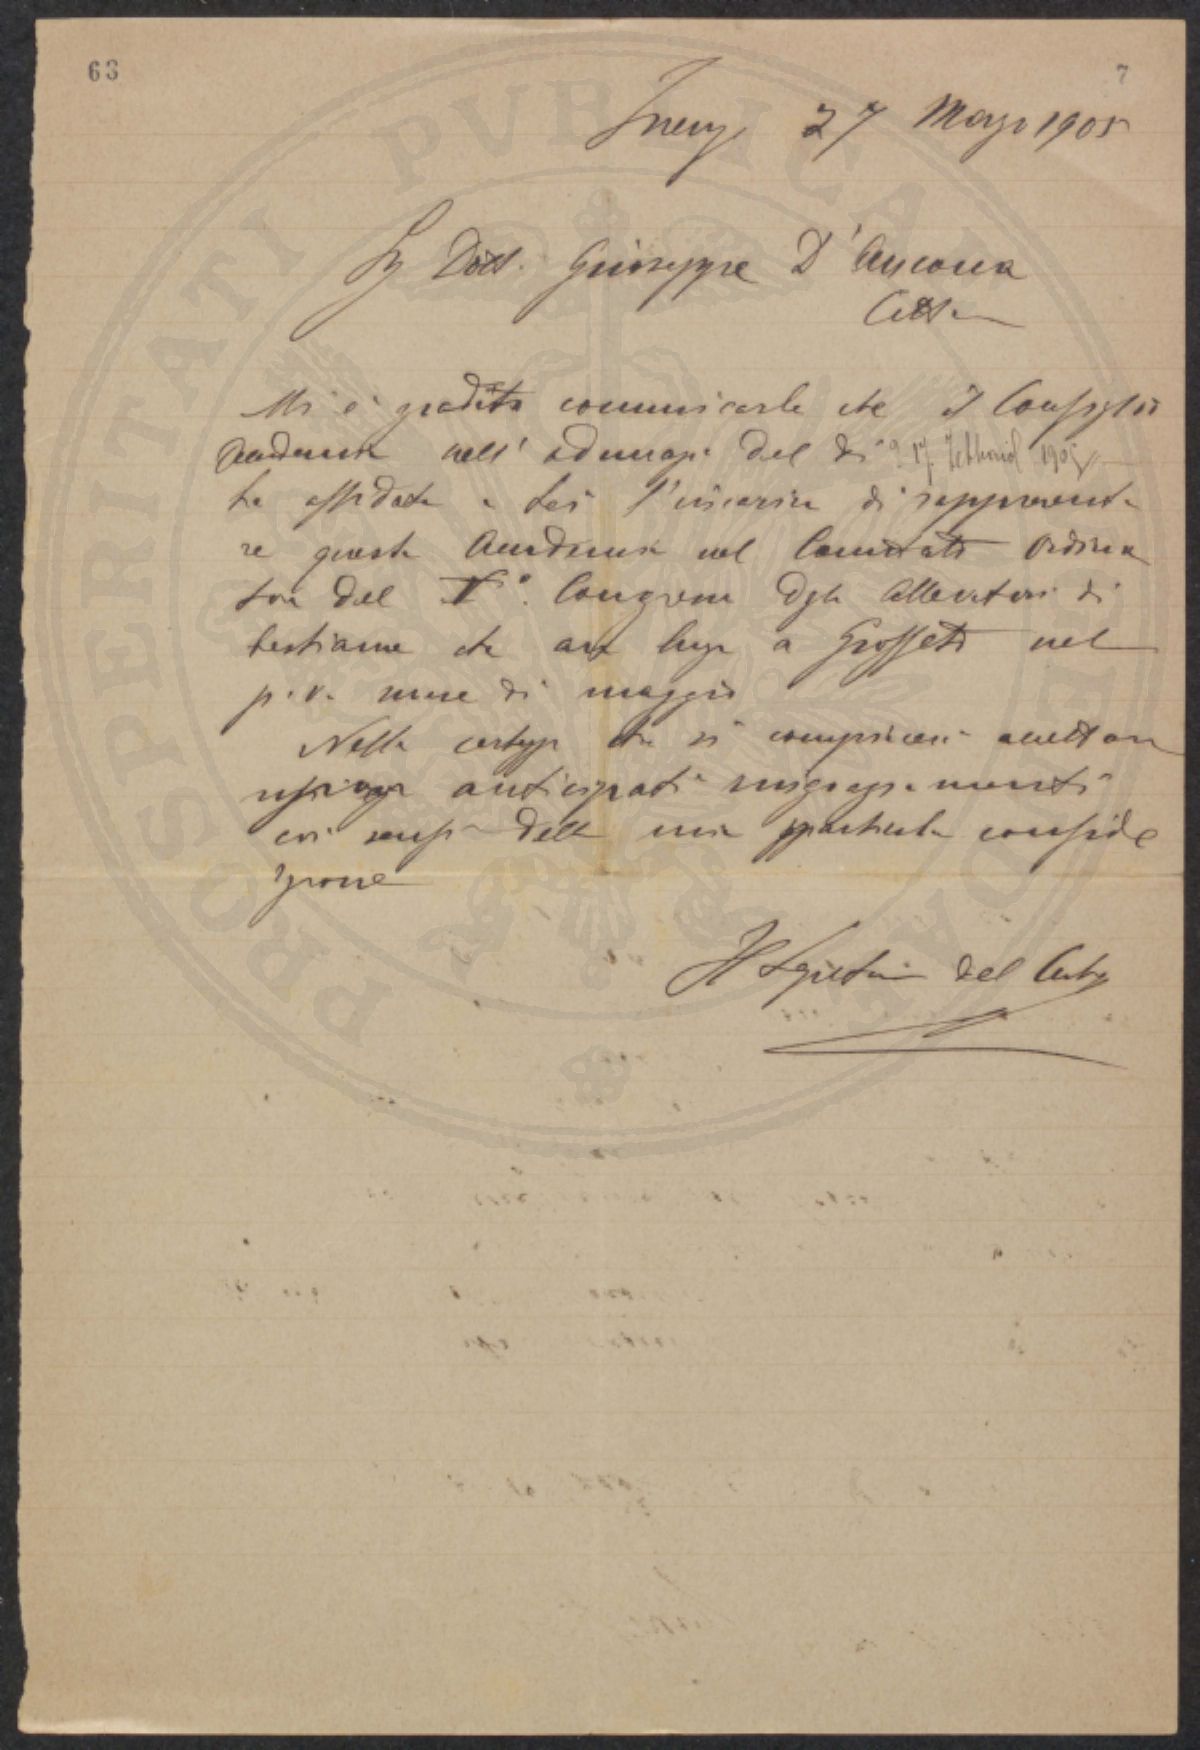 63
7
Firenze 27 Marzo 1905
Sig Dott. Giuseppe D'Ancona
Città
Mi è gradito comunicarle che il Consiglio
Accademico nell'adunanza del dì 17 Febbraio 1905
ha affidato a Lei l'incarico di rappresenta
re questa Accademia nel Comitato Ordina
tore del Congresso degli Allevatori di
bestiame che avrà luogo a Grosseto nel
p.v. mese di maggio
Nella certezza che si compiacerà accettare
anticipati ringraziamenti
coi sensi della mia particolare considera
zione
Il Segretario degli Atti
PROSPERITATI PVBLICAE AVGENDAE